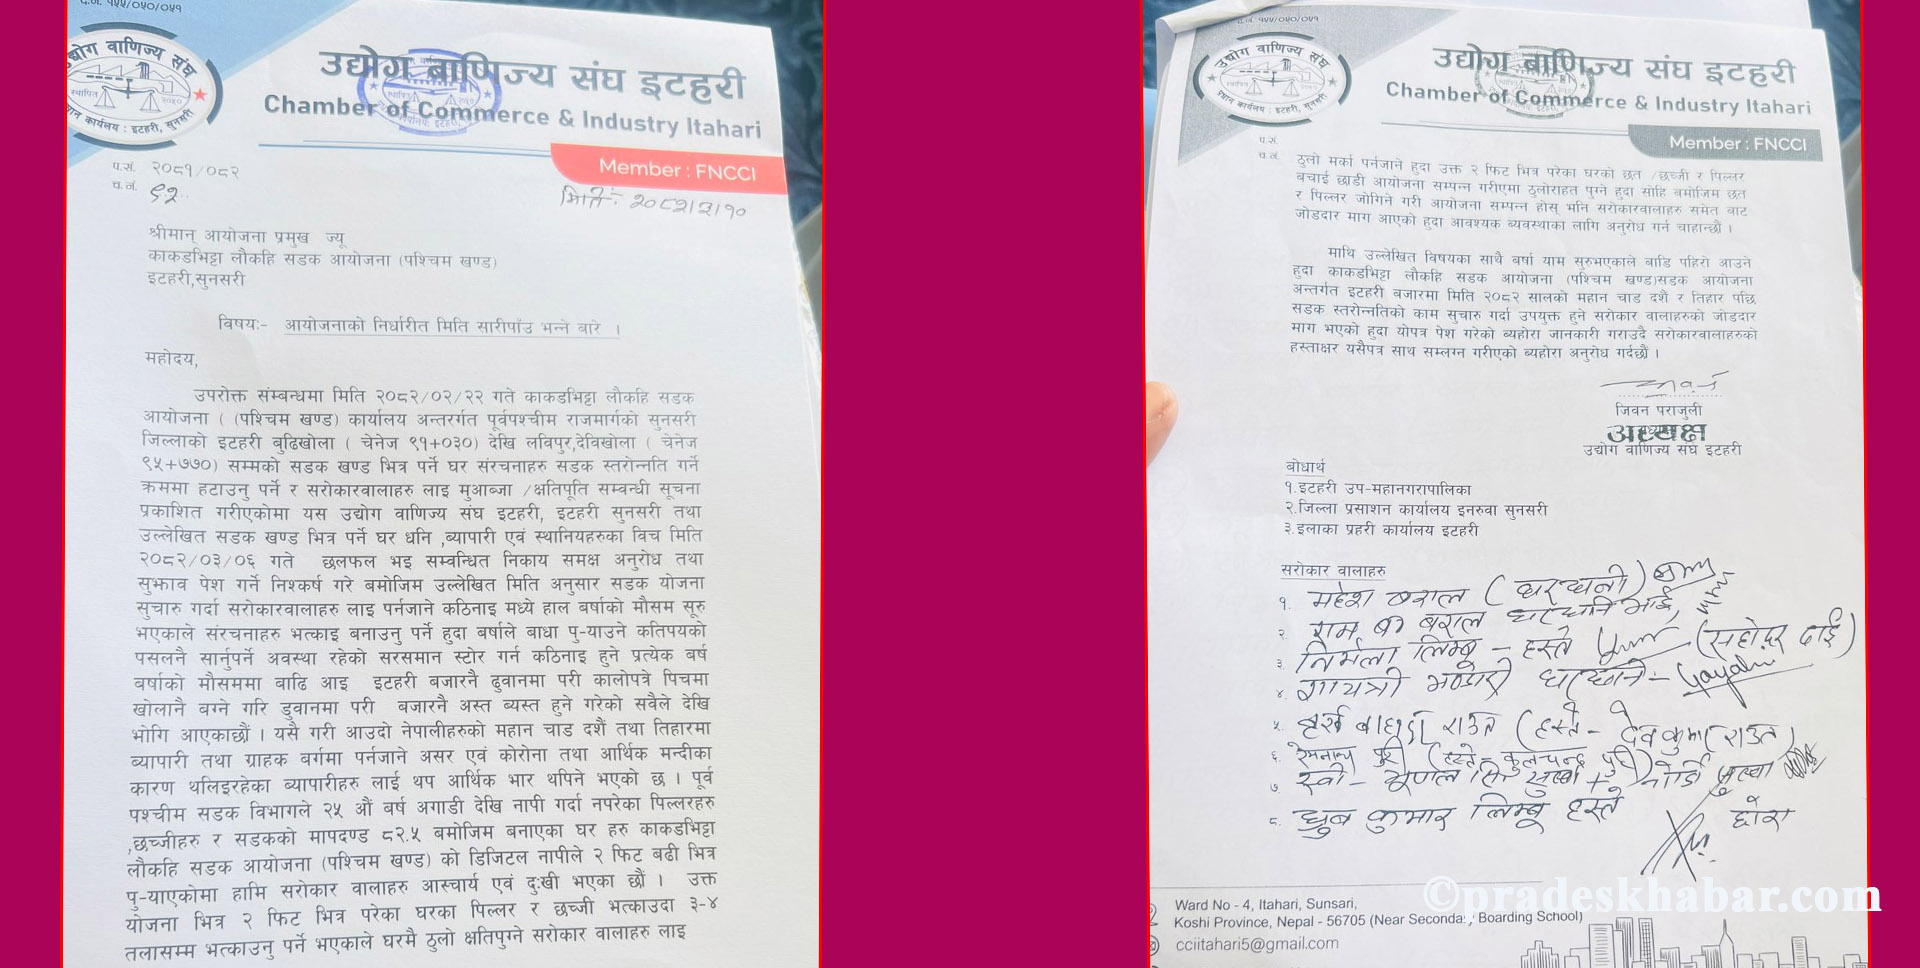 द.नं. १५५/०५०/०५१
उद्योग वाणिज्य संघ इटहरी
Chamber of Commerce & Industry Itahari
Member : FNCCI
प.सं. २०८१/०८२
च.नं. ९२
मितिः- २०८२।३।१०
श्रीमान् आयोजना प्रमुख ज्यू
काकडभिट्टा लौकहि सडक आयोजना (पश्चिम खण्ड)
इटहरी,सुनसरी
विषयः- आयोजनाको निर्धारीत मिति सारीपाँउ भन्ने बारे ।
महोदय,
उपरोक्त संम्बन्धमा मिति २०८२/०२/२२ गते काकडभिट्टा लौकहि सडक
आयोजना ( (पश्चिम खण्ड) कार्यालय अन्तरर्गत पूर्वपश्चीम राजमार्गको सुनसरी
जिल्लाको इटहरी बुढिखोला ( चेनेज ९१+०३०) देखि लविपुर,देविखोला ( चेनेज
९५+७७०) सम्मको सडक खण्ड भित्र पर्ने घर संरचनाहरु सडक स्तरोन्नति गर्ने
क्रममा हटाउनु पर्ने र सरोकारवालाहरु लाइ मुआब्जा /क्षतिपूति सम्वन्धी सूचना
प्रकाशित गरीएकोमा यस उद्योग वाणिज्य संघ इटहरी, इटहरी सुनसरी तथा
उल्लेखित सडक खण्ड भित्र पर्ने घर धनि ,ब्यापारी एवं स्थानियहरुका विच मिति
२०८२/०३/०६ गते छलफल भइ सम्वन्धित निकाय समक्ष अनुरोध तथा
सुझाव पेश गर्ने निश्कर्ष गरे बमोजिम उल्लेखित मिति अनुसार सडक योजना
सुचारु गर्दा सरोकारवालाहरु लाइ पर्नजाने कठिनाइ मध्ये हाल बर्षाको मौसम सूरु
भएकाले संरचनाहरु भत्काइ बनाउनु पर्ने हुदा बर्षाले बाधा पु-याउने कतिपयको
पसलनै सार्नुपर्ने अवस्था रहेको सरसमान स्टोर गर्न कठिनाइ हुने प्रत्येक बर्ष
बर्षाको मौसममा बाढि आइ इटहरी बजारनै ढुवानमा परी कालोपत्रे पिचमा
खोलानै बग्ने गरि डुवानमा परी बजारनै अस्त ब्यस्त हुने गरेको सवैले देखि
भोगि आएकाछौं । यसै गरी आउदो नेपालीहरुको महान चाड दशैं तथा तिहारमा
ब्यापारी तथा ग्राहक बर्गमा पर्नजाने असर एवं कोरोना तथा आर्थिक मन्दीका
कारण थलिइरहेका ब्यापारीहरु लाई थप आर्थिक भार थपिने भएको छ । पूर्व
पश्चीम सडक विभागले २५ औं बर्ष अगाडी देखि नापी गर्दा नपरेका पिल्लरहरु
,छच्जीहरु र सडकको मापदण्ड ८२.५ बमोजिम बनाएका घर हरु काकडभिट्टा
लौकहि सडक आयोजना (पश्चिम खण्ड) को डिजिटल नापीले २ फिट बढी भित्र
पु-याएकोमा हामि सरोकार वालाहरु आस्चार्य एवं दुःखी भएका छौं । उक्त
योजना भित्र २ फिट भित्र परेका घरका पिल्लर र छच्जी भत्काउदा ३-४
तलासम्म भत्काउनु पर्ने भएकाले घरमै ठुलो क्षतिपुग्ने सरोकार वालाहरु लाइ
द.नं. १५५/०५०/०५१
उद्योग वाणिज्य संघ इटहरी
Chamber of Commerce & Industry Itahari
Member : FNCCI
प.सं.
च.नं.
ठुलो मर्का पर्नजाने हुदा उक्त २ फिट भित्र परेका घरको छत /छच्जी र पिल्लर
बचाई छाडी आयोजना सम्पन्न गरीएमा ठुलोराहत पुग्ने हुदा सोहि बमोजिम छत
र पिल्लर जोगिने गरी आयोजना सम्पन्न होस् भनि सरोकारवालाहरु समेत बाट
जोडदार माग आएको हुदा आवश्यक ब्यवस्थाका लागि अनुरोध गर्न चाहान्छौं ।
माथि उल्लेखित विषयका साथै बर्षा याम सुरुभएकाले बाडि पहिरो आउने
हुदा काकडभिट्टा लौकहि सडक आयोजना (पश्चिम खण्ड)सडक आयोजना
अन्तर्गत इटहरी बजारमा मिति २०८२ सालको महान चाड दशैं र तिहार पछि
सडक स्तरोन्नतिको काम सुचारु गर्दा उपयुक्त हुने सरोकार वालाहरुको जोडदार
माग भएको हुदा योपत्र पेश गरेको ब्यहोरा जानकारी गराउदै सरोकारवालाहरुको
हस्ताक्षर यसैपत्र साथ सम्लग्न गरीएको ब्यहोरा अनुरोध गर्दछौं ।
जिवन पराजुली
अध्यक्ष
उद्योग वाणिज्य संघ इटहरी
बोधार्थ
१.इटहरी उप-महानगरापालिका
२.जिल्ला प्रसाशन कार्यालय इनरुवा सुनसरी
३.इलाका प्रहरी कार्यालय इटहरी
सरोकार वालाहरु
१. महेश बराल (घरधनी)
२. राम ब बराल घरधनि भाई,
३. निर्मला लिम्बू - हस्ते (सहोदर दाई)
४. गायत्री भण्डारी घरधनि -
५. हर्ख बाहादुर राउत (हस्ते - देव कुमार राउत)
६. प्रेमनाथ पुरी (हस्ते - कुलचन्द्र पुरी)
७
८. ध्रुब कुमार लिम्बू हस्ते
छोरा
©pradeskhabar.com
Ward No - 4, Itahari, Sunsari,
Koshi Province, Nepal - 56705 (Near Secondary Boarding School)
cciitahari5@gmail.com